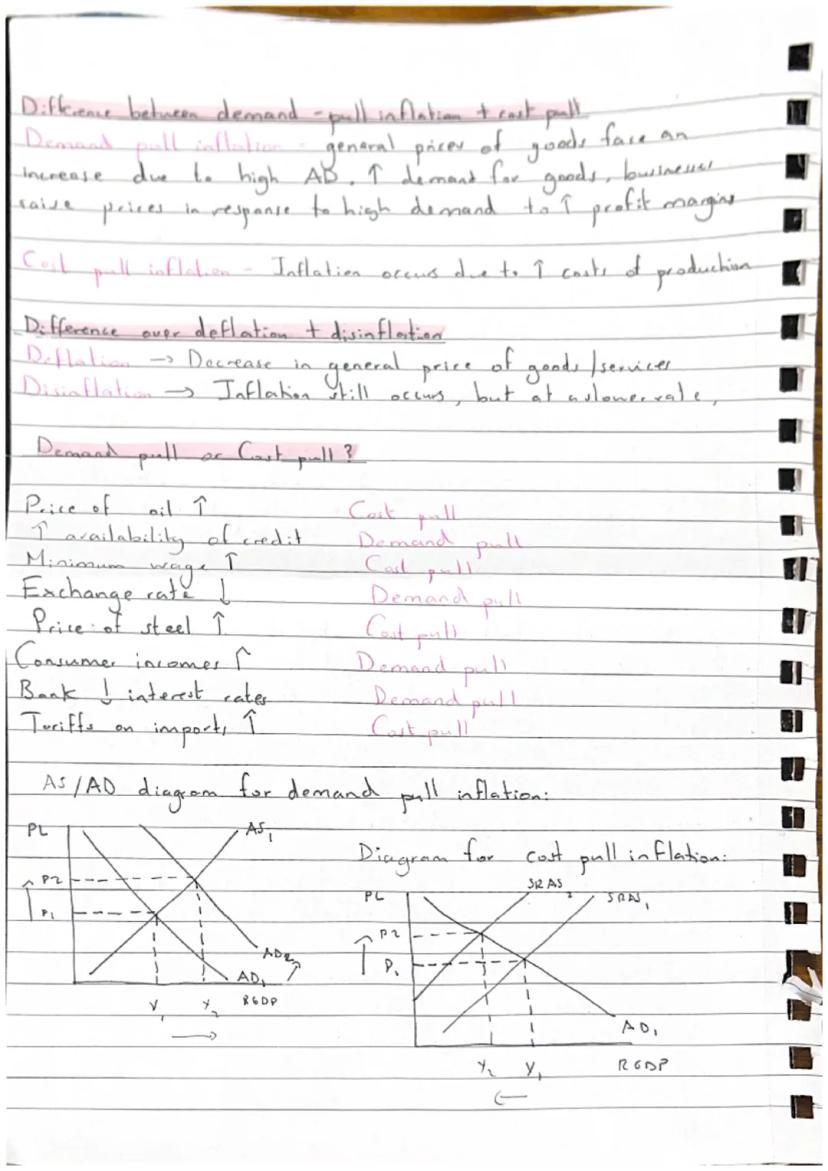 Difference between demand-pull inflation + cost pull
Demand pull inflation - general prices of goods face an
increase due to high AD. ↑ demand for goods, businesses
raise prices in response to high demand to ↑ profit margins
Cost pull inflation - Inflation occurs due to ↑ costs of production
Difference over deflation + disinflation
Deflation → Decrease in general price of goods/services
Disinflation → Inflation still occurs, but at a slower rate,
Demand pull or Cost pull?
Price of oil ↑ Cost pull
↑ availability of credit Demand pull
Minimum wage ↑ Cost pull
Exchange rate ↓ Demand pull
Price of steel ↑ Cost pull
Consumer incomes ↑ Demand pull
Bank ↓ interest rates Demand pull
Tariffs on imports ↑ Cost pull
AS/AD diagram for demand pull inflation:
PL
AS₁
↑ P2
P₁
AD₂
AD₁
Y₁ Y₂ RGDP
→
Diagram for cost pull inflation:
PL
SRAS₂ SRAS₁
↑ P2
P₁
AD₁
Y₂ Y₁ RGDP
←